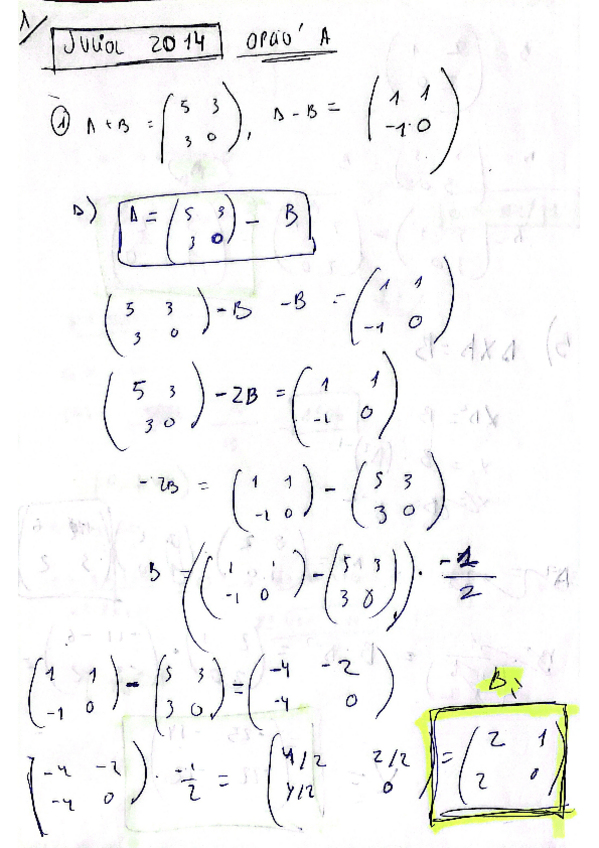 1/
Juliol 2014 OPCIÓ A
① A + B = (5 3 / 3 0), A - B = (1 1 / -1 0)
A) A = (5 3 / 3 0) - B
(5 3 / 3 0) - B - B = (1 1 / -1 0)
(5 3 / 3 0) - 2B = (1 1 / -1 0)
-2B = (1 1 / -1 0) - (5 3 / 3 0)
B = ((1 1 / -1 0) - (5 3 / 3 0)) · -1/2
(1 1 / -1 0) - (5 3 / 3 0) = (-4 -2 / -4 0)
B
(-4 -2 / -4 0) · -1/2 = (4/2 2/2 / 4/2 0) = (2 1 / 2 0)